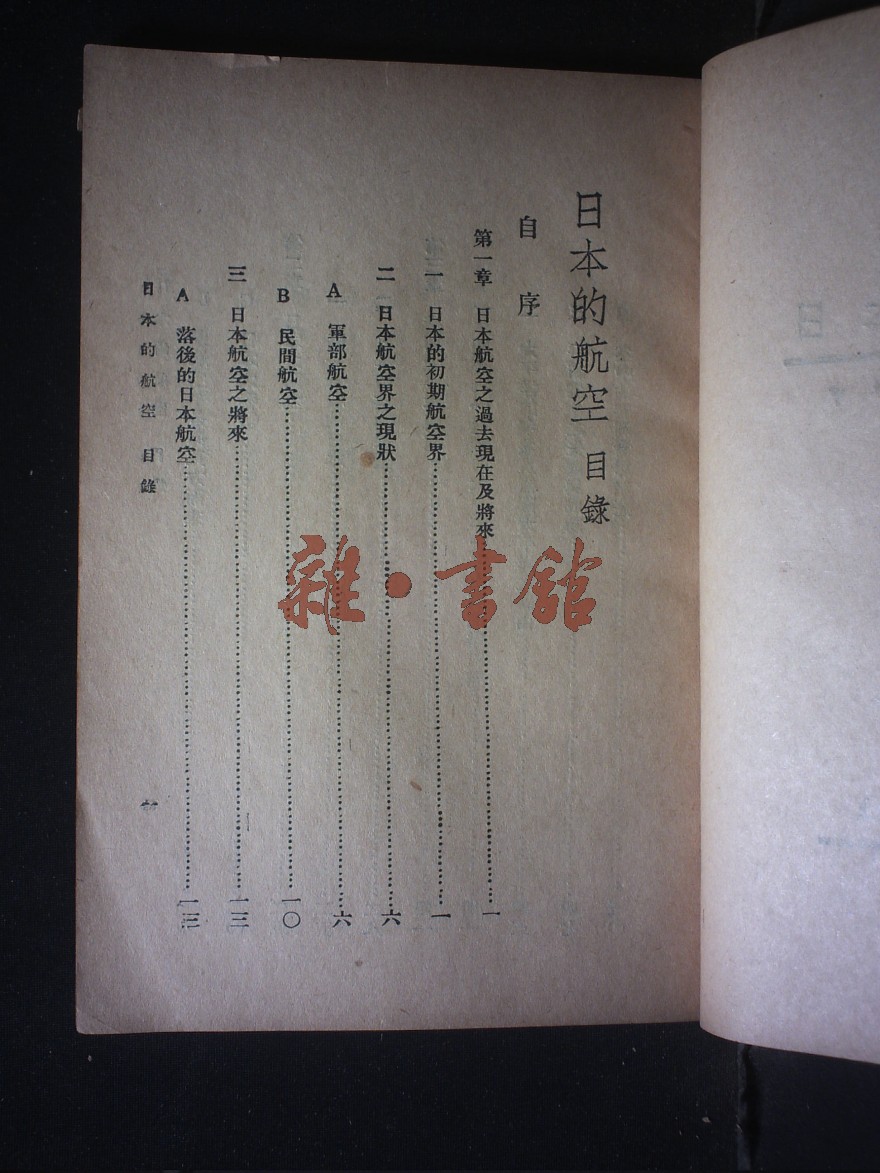 日本的航空 目錄
自序
第一章 日本航空之過去現在及將來……一
一 日本的初期航空界……一
二 日本航空界之現狀……六
A 軍部航空……六
B 民間航空……一〇
三 日本航空之將來……一三
A 落後的日本航空……一三
日本的航空 目錄
雜·書館